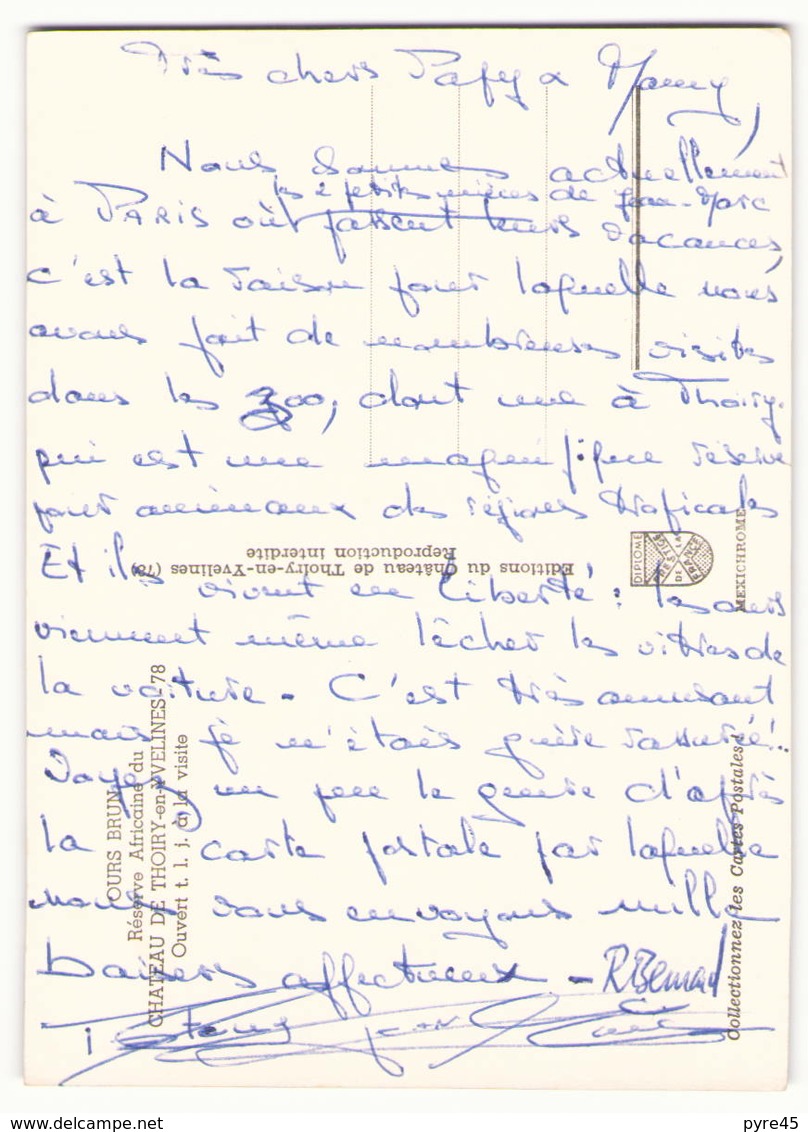 Très chers Papy & Mamy,
Nous sommes actuellement
les 2 petites nièces de Jean-Marc
à PARIS où passent leurs vacances,
c'est la raison pour laquelle nous
avons fait de nombreuses visites
dans les zoo, dont une à Thoiry,
qui est une magnifique réserve
pour animaux des régions tropicales
Et ils vivent en liberté : les ours
viennent même lêcher les vitres de
la voiture - C'est très amusant
mais je n'étais guère rassuré !..
Voyez un peu le genre d'après
la carte postale par laquelle
nous vous envoyons mille
baisers affectueux - R Bernard
Jean
OURS BRUN
Réserve Africaine du
CHATEAU DE THOIRY-en-YVELINES-78
Ouvert t. l. j. à la visite
Editions du Château de Thoiry-en-Yvelines (78)
Reproduction interdite
DIPLOME
PRESTIGE
DE LA
FRANCE
MEXICHROME
Collectionnez les Cartes Postales !
delcampe.net
pyre45